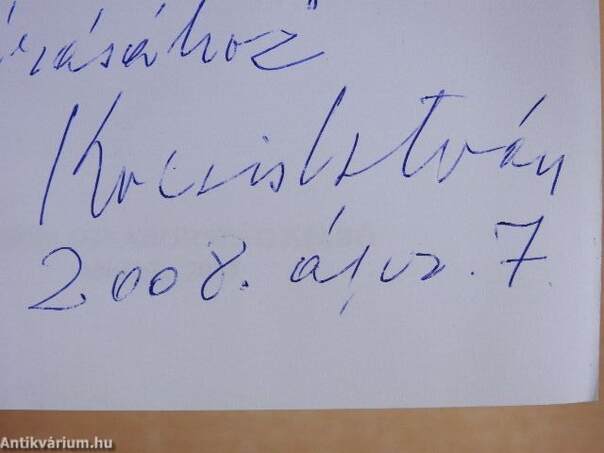 rásához"
Kocsis István
2008. ápr. 7.
Antikvárium.hu